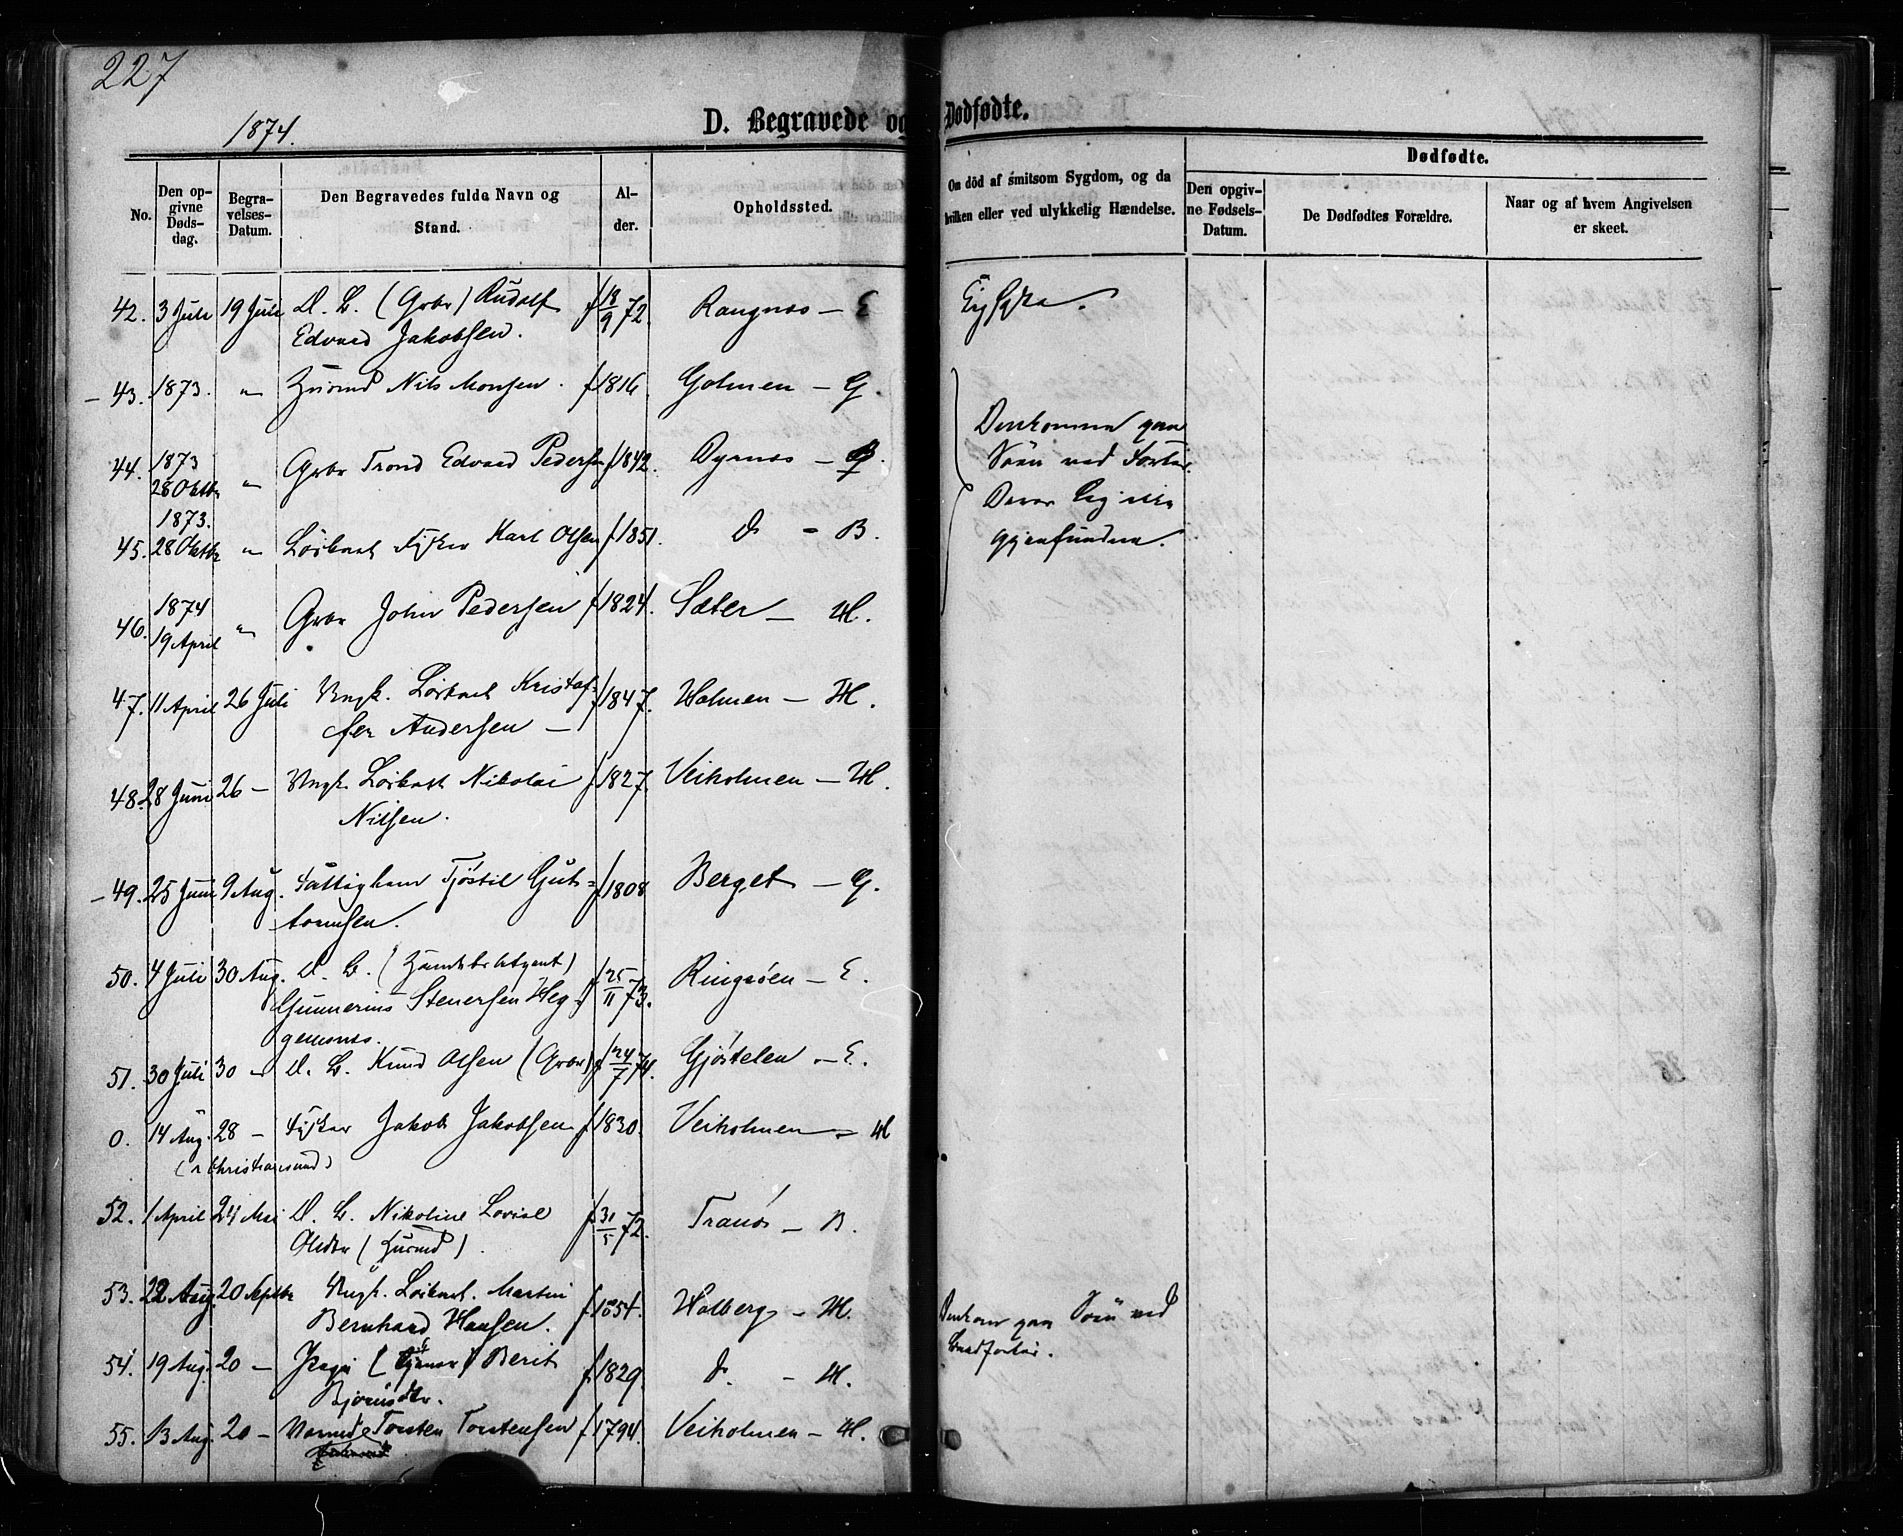 227
1874.
D. Begravede og Dødfødte.
No.
Den op-
givne
Døds-
dag.
Begra-
velses-
Datum.
Den Begravedes fulde Navn og
Stand.
Al-
der.
Opholdssted.
Om död af smitsom Sygdom, og da
hvilken eller ved ulykkelig Hændelse.
Dødfødte.
Den opgiv-
ne Fødsels-
Datum.
De Dødfødtes Forældre.
Naar og af hvem Angivelsen
er skeet.
42. 3 Juli 19 Juli D. B. (Grbr) Rudolf f 18/9 72. Rangnæs — E
Edvard Jakobsen.
43. 1873. " Nils Monsen. f 1816. Golmen — G.
44. 1873 28 Oktbr " Grbr Trond Edvard Pedersen f 1842. Dyrnæs — B
Omkommen paa
Søen ved
45. 1873. 28 Oktbr " Løskarl Fisker Karl Olsen f 1851. do — B.
gjenfundne.
46. 1874 19 April " Grbr John Pedersen f 1824. Sæter — H.
47. 11 April 26 Juli Ungk. Løskarl Kristof-
fer Andersen — f 1847. Holmen — H.
48. 28 Juni 26 — Ungk. Løskarl Nikolai f 1827. Veiholmen — H.
Nilsen.
49. 25 Juni 9 Aug. Fattiglem Tjøstil Gut-
tormsen. f 1808 Berget — G.
50. 4 Juli 30 Aug. D. B.
Gunnerius Stenersen Heg-
gemsnes. f 25/11 73. Ringsøen — E.
51. 30 Juli 30 — D. B. Knud Olsen (Grbr) f 24/7 74. Gjøstelen — E.
0. 14 Aug. 28 — Fisker Jakob Jakobsen f 1830. Veiholmen — H
(i Christiansund)
52. 1 April 24 Mai D. B. Nikoline Lovise f 31/5 72. Tranøs — B.
Olsdtr (Husmd).
53. 22 Aug. 20 Septbr Ungk. Løskarl. Martin
Bernhard Hansen. f 1854. Holberg — H.
Omkom paa Søen ved
54. 19 Aug. 20 — Berit f 1829. do. — H.
Bjørnsdtr.
55. 13 Aug. 20 — Torsten Torstensen f 1794. Veiholmen — H.